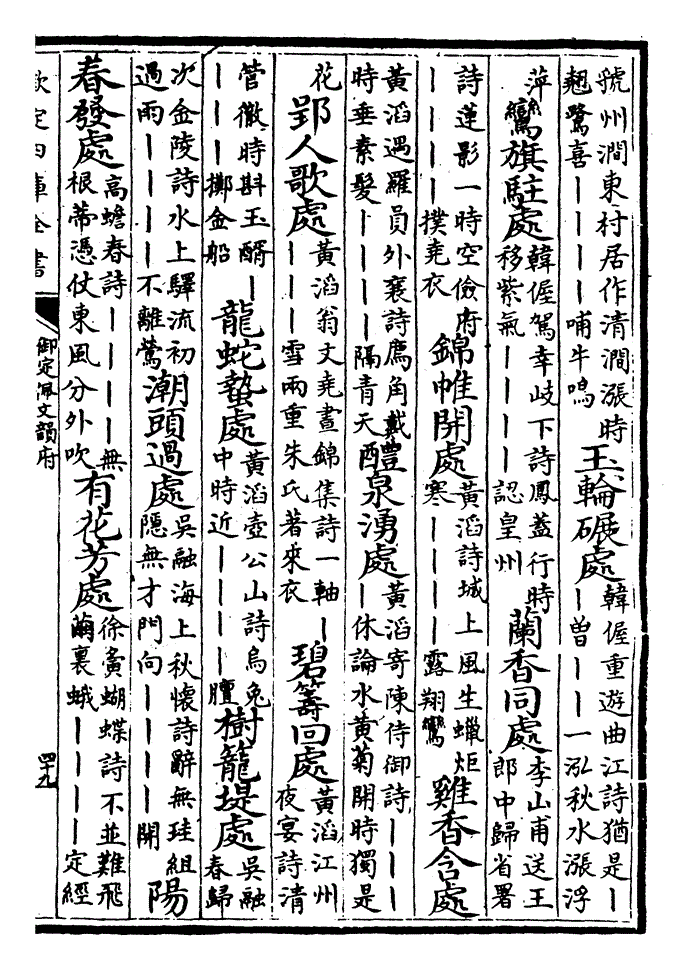 虢州澗東村居作清澗漲時
翹鷺喜｜｜｜｜哺牛鳴
玉輪碾處
韓偓重遊曲江詩猶是｜
｜曾｜｜一泓秋水漲浮
萍
鸞旗駐處
韓偓駕幸岐下詩鳳葢行時
移紫氣｜｜｜｜認皇州
蘭香同處
李山甫送王
郎中歸省署
詩蓮影一時空儉府
｜｜｜｜撲堯衣
錦帷開處
黃滔詩城上風生蠟炬
寒｜｜｜｜露翔鸞
雞香含處
黃滔遇羅員外袞詩廌角戴
時垂素髮｜｜｜｜隔青天
醴泉湧處
黃滔寄陳侍御詩｜｜｜
｜休論水黃菊開時獨是
花
郢人歌處
黃滔翁文堯晝錦集詩一軸｜
｜｜｜雪兩重朱氏著來衣
碧籌回處
黃滔江州
夜宴詩清
管徹時斟玉醑｜
｜｜｜擲金船
龍蛇蟄處
黃滔壺公山詩烏兔
中時近｜｜｜｜膻
樹籠堤處
吳融
春歸
次金陵詩水上驛流初
過雨｜｜｜｜不離鶯
潮頭過處
吳融海上秋懷詩辭無珪組
隱無才門向｜｜｜｜開
陽
春發處
高蟾春詩｜｜｜｜無
根蒂憑仗東風分外吹
有花芳處
徐夤蝴蝶詩不並難飛
繭裏蛾｜｜｜｜定經
欽定四庫全書
御定佩文韻府
四十九